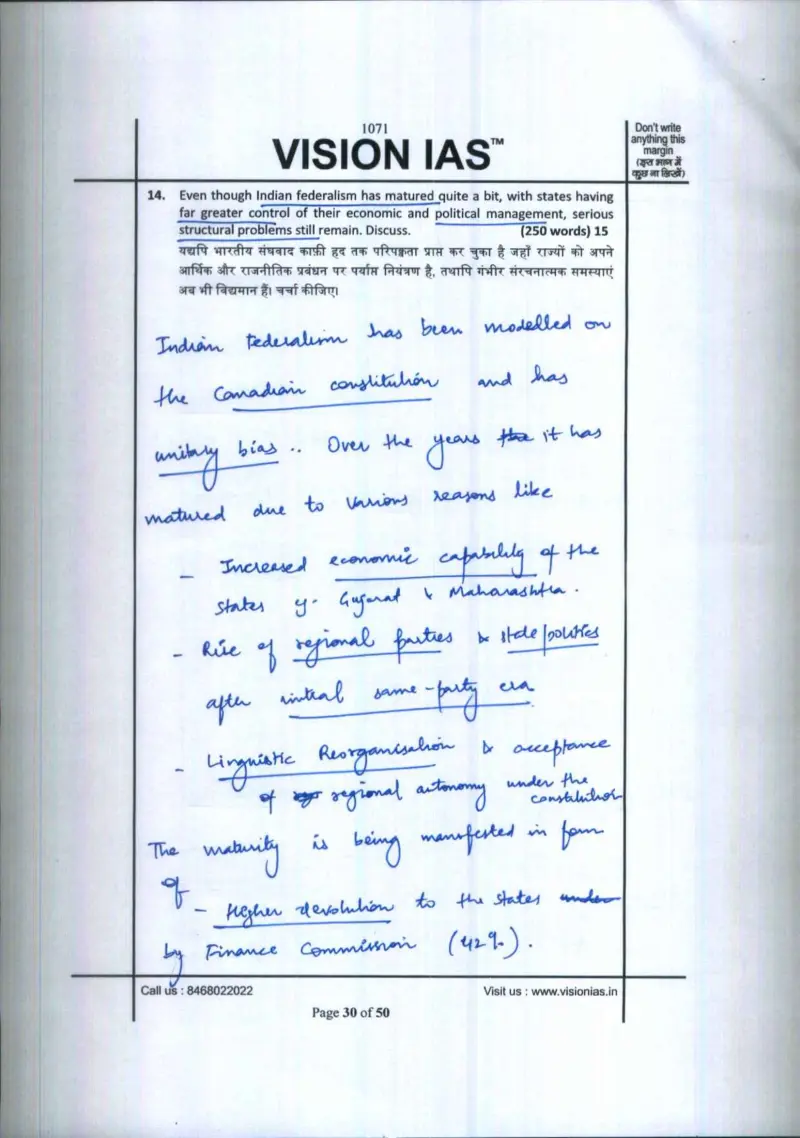 1071
VISION IAS™
Don't write
anything this
margin
(इस भाग में
कुछ ना लिखें)
14. Even though Indian federalism has matured quite a bit, with states having
far greater control of their economic and political management, serious
structural problems still remain. Discuss. (250 words) 15
यद्यपि भारतीय संघवाद काफ़ी हद तक परिपक्वता प्राप्त कर चुका है जहाँ राज्यों को अपने
आर्थिक और राजनीतिक प्रबंधन पर पर्याप्त नियंत्रण है, तथापि गंभीर संरचनात्मक समस्याएं
अब भी विद्यमान हैं। चर्चा कीजिए।
Indian federalism has been modelled on
the Canadian constitution and has
unitary bias .. Over the years it has
matured due to various reasons like
- Increased economic capability of the
states eg. Gujarat & Maharashtra.
- Rise of regional parties & state politics
after initial same-party era
- Linguistic Reorganisation & acceptance
of regional autonomy under the
constitution
The maturity is being manifested in form
of
- Higher devolution to the states under
by Finance Commission (42%).
Call us : 8468022022
Visit us : www.visionias.in
Page 30 of 50